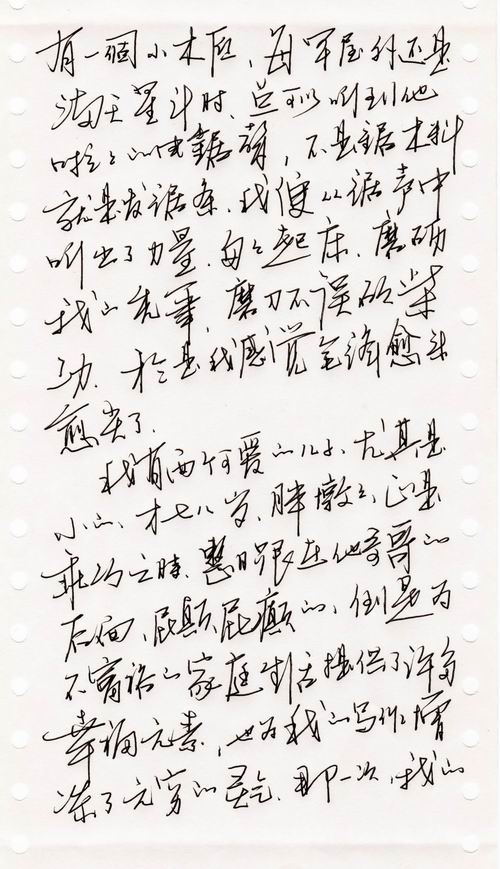 有一個小木匠,每罕屋外还是
满天星斗时,总可以听到他
啦々的鋸聲,不是鋸木料
就是发锯条,我便从锯声中
听出了力量,匆々起床,磨砺
我的先筆,磨刀不误砍柴
功,於是我感觉笔锋愈来
愈尖了.
我有两个可爱的儿子,尤其是
小的,才七八岁,胖墩々,正是
乖巧之時,整日跟在他哥哥的
后面,屁颠屁癫的,倒是为
不富裕的家庭生活提供了许多
幸福元素,也为我的写作增
添了无穷的灵气,那一次,我的